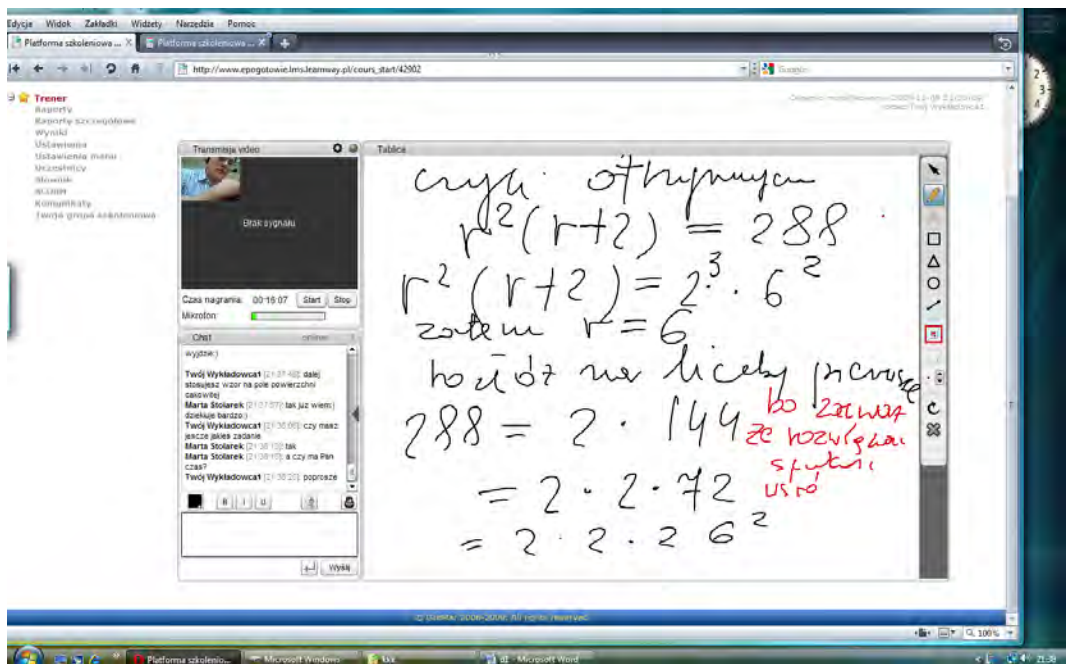 Edycja Widok Zakładki Widżety Narzędzia Pomoc
Platforma szkoleniowa ... X Platforma szkoleniowa ... X
http://www.epogotowie.lms.learnway.pl/cours_start/42902
Google
Trener
Raporty
Raporty szczegółowe
Wyniki
Ustawienia
Ustawienia menu
Uczestnicy
Słownik
SCORM
Komunikaty
Twoja grupa szkoleniowa
Transmisja video
Brak sygnału
Czas nagrania: 00:16:07 Start Stop
Mikrofon:
Chat online: 
wyjdzie:)
Twój Wykładowca1 dalej
stosujesz wzor na pole powierzchni
całkowitej
Marta Stolarek tak juz wiem:)
dziekuje bardzo:)
Twój Wykładowca1 czy masz
jeszcze jakies zadanie
Marta Stolarek tak
Marta Stolarek a czy ma Pan
czas?
Twój Wykładowca1 poprosze
B I U
Wyślij
Tablica
czyli otrzymujem
r²(r+2) = 288
r²(r+2) = 2³ · 6²
zatem r = 6
rozłóż na liczby pierwsze
288 = 2 · 144
= 2 · 2 · 72
= 2 · 2 · 2 6²
bo zauważ
że
100%
Platforma szkolenio... Microsoft Windows kkk d1 - Microsoft Word
21:38